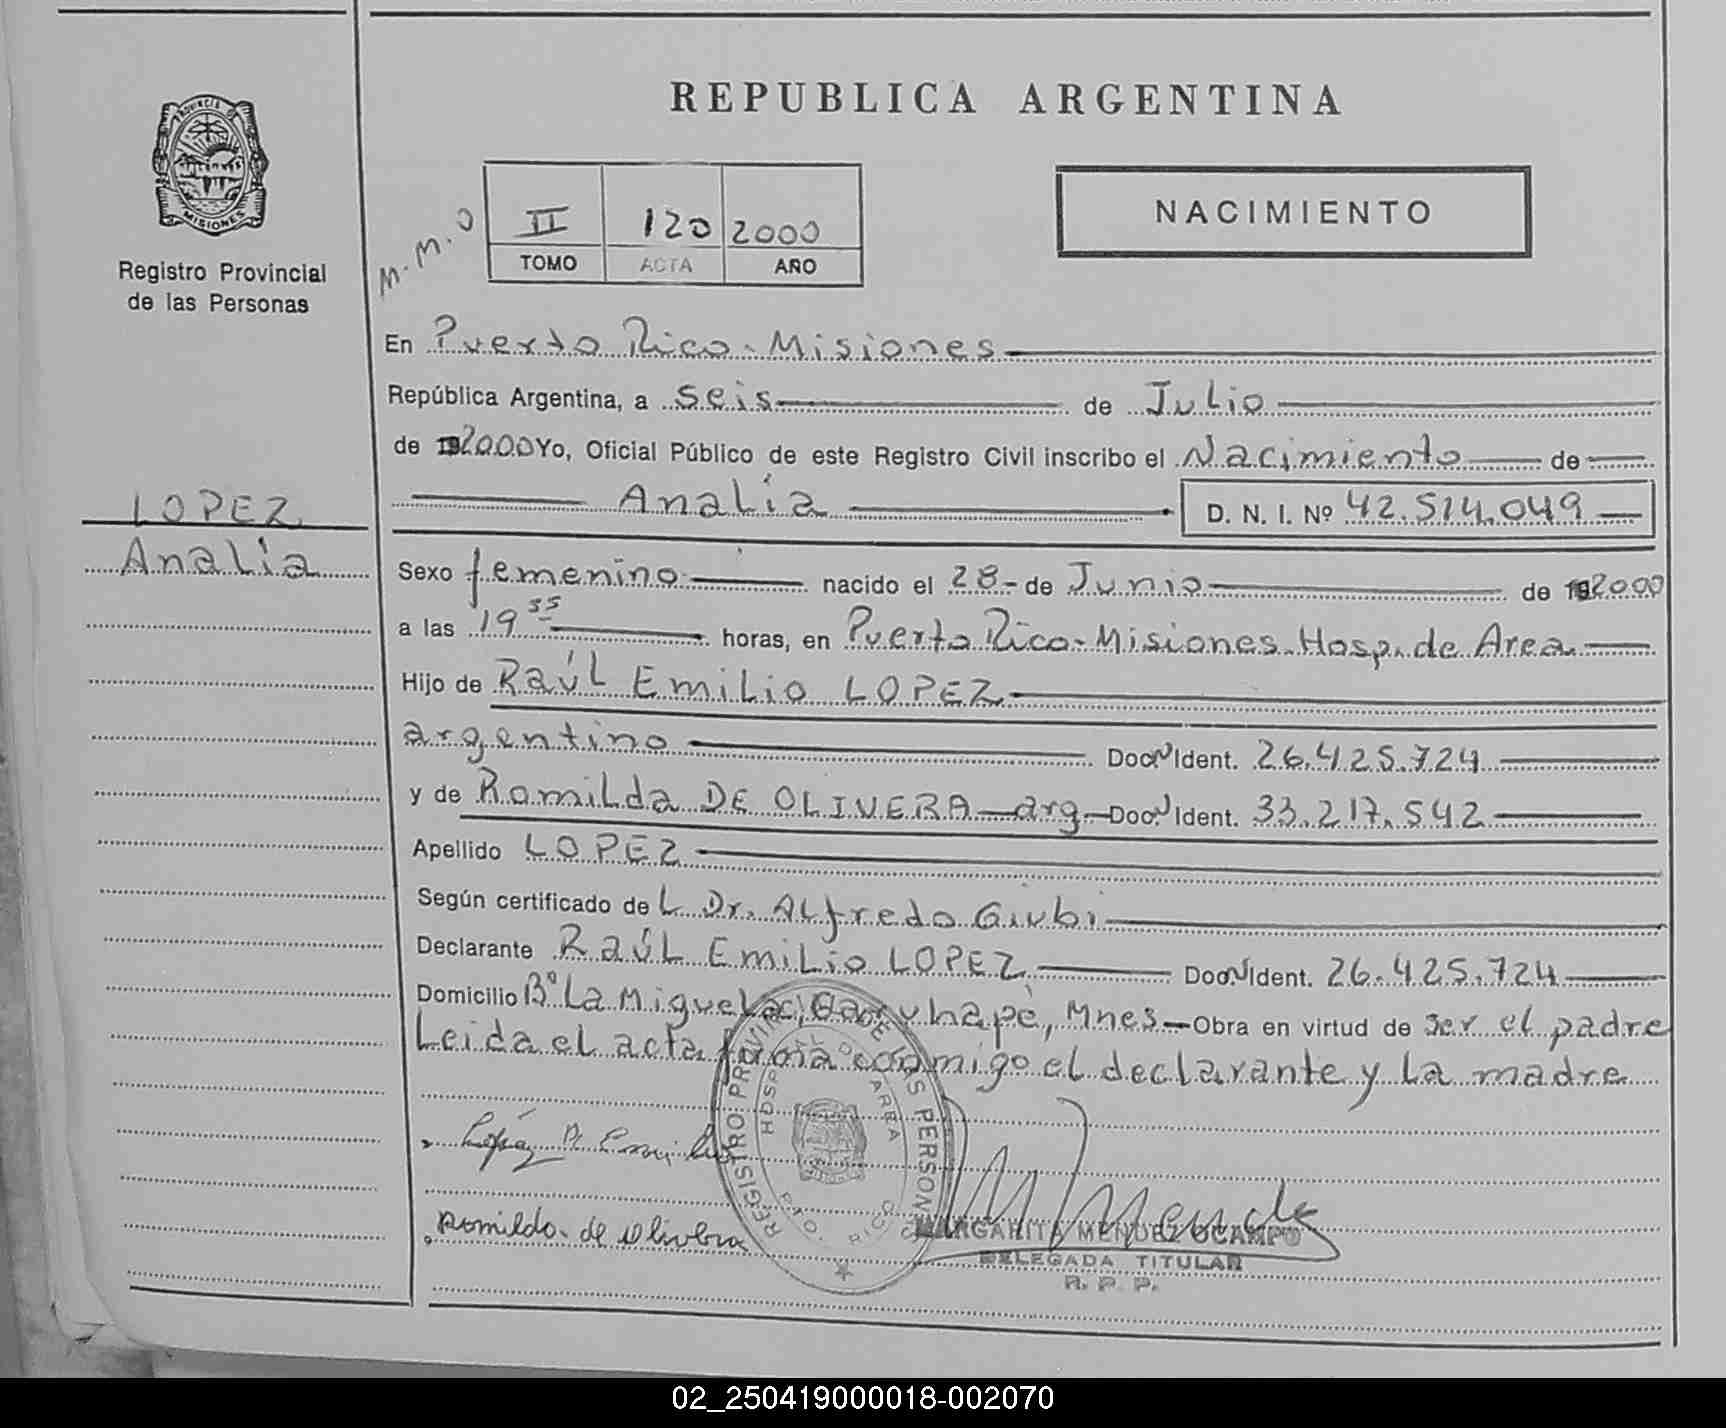 REPUBLICA ARGENTINA
PROVINCIA DE
MISIONES
Registro Provincial
de las Personas
M. M. O
II 120 2000
TOMO ACTA AÑO
NACIMIENTO
En Puerto Rico - Misiones
República Argentina, a seis de Julio
de 192000 Yo, Oficial Público de este Registro Civil inscribo el Nacimiento de
Analía D. N. I. Nº 42.514.049
LOPEZ
Analía
Sexo femenino nacido el 28 - de Junio de 192000
a las 19 35 horas, en Puerto Rico - Misiones - Hosp. de Area
Hijo de Raúl Emilio LOPEZ
argentino Doc. N Ident. 26.425.724
y de Romilda DE OLIVERA - arg - Doc. N Ident. 33.217.542
Apellido LOPEZ
Según certificado de L Dr. Alfredo Giubi
Declarante Raúl Emilio LOPEZ Doc. N Ident. 26.425.724
Domicilio Bº La Miguela, Garuhapé, Mnes - Obra en virtud de ser el padre
Leida el acta firma conmigo el declarante y la madre
REGISTRO PROVINCIAL DE LAS PERSONAS
HOSPITAL DE AREA
PTO. RICO
López R Emilio
Romilda de Olivera
MARGARITA MENDEZ OCAMPO
DELEGADA TITULAR
R. P. P.
02_250419000018-002070